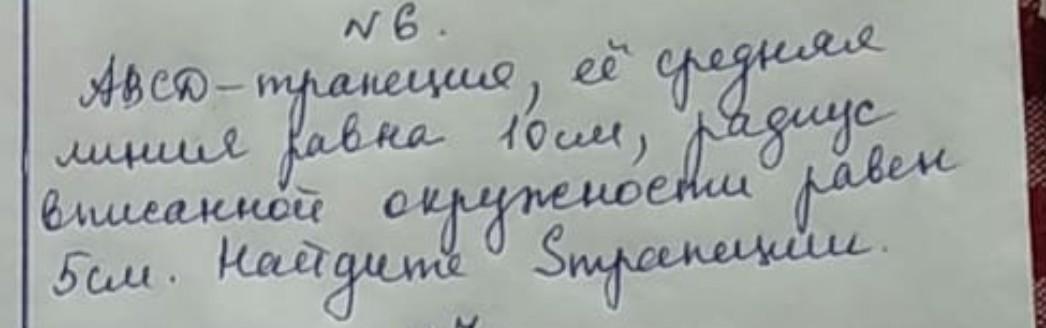 N6.
ABCD – трапеция, её средняя
линия равна 10см, радиус
вписанной окружности равен
5см. Найдите Sтрапеции.